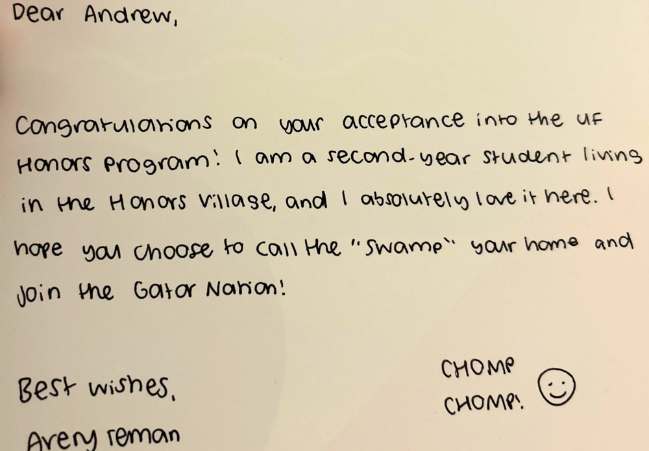 Dear Andrew,
Congratulations on your acceptance into the UF
Honors Program! I am a second-year student living
in the Honors Village, and I absolutely love it here. I
hope you choose to call the "Swamp" your home and
join the Gator Nation!
Best wishes,
Avery reman
CHOMP
CHOMP!